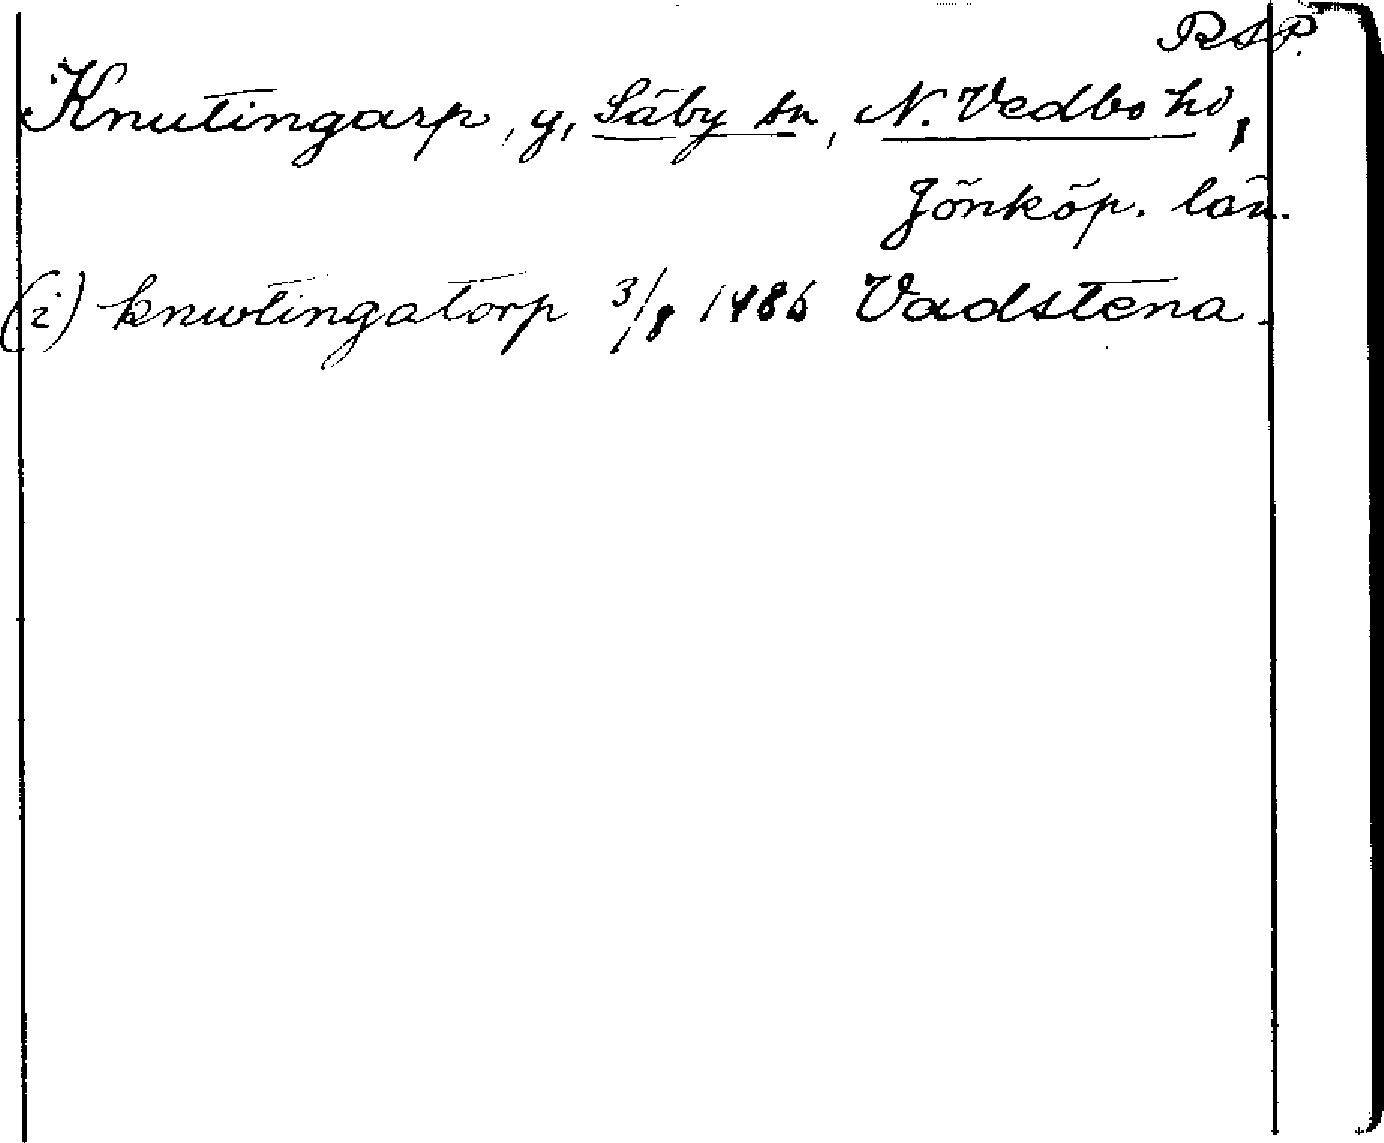 RAP.
Knutingarp, y, Säby sn, N. Vedbo hd,
Jönköp. län.
(i) knwtingatorp 3/8 1486 Vadstena.